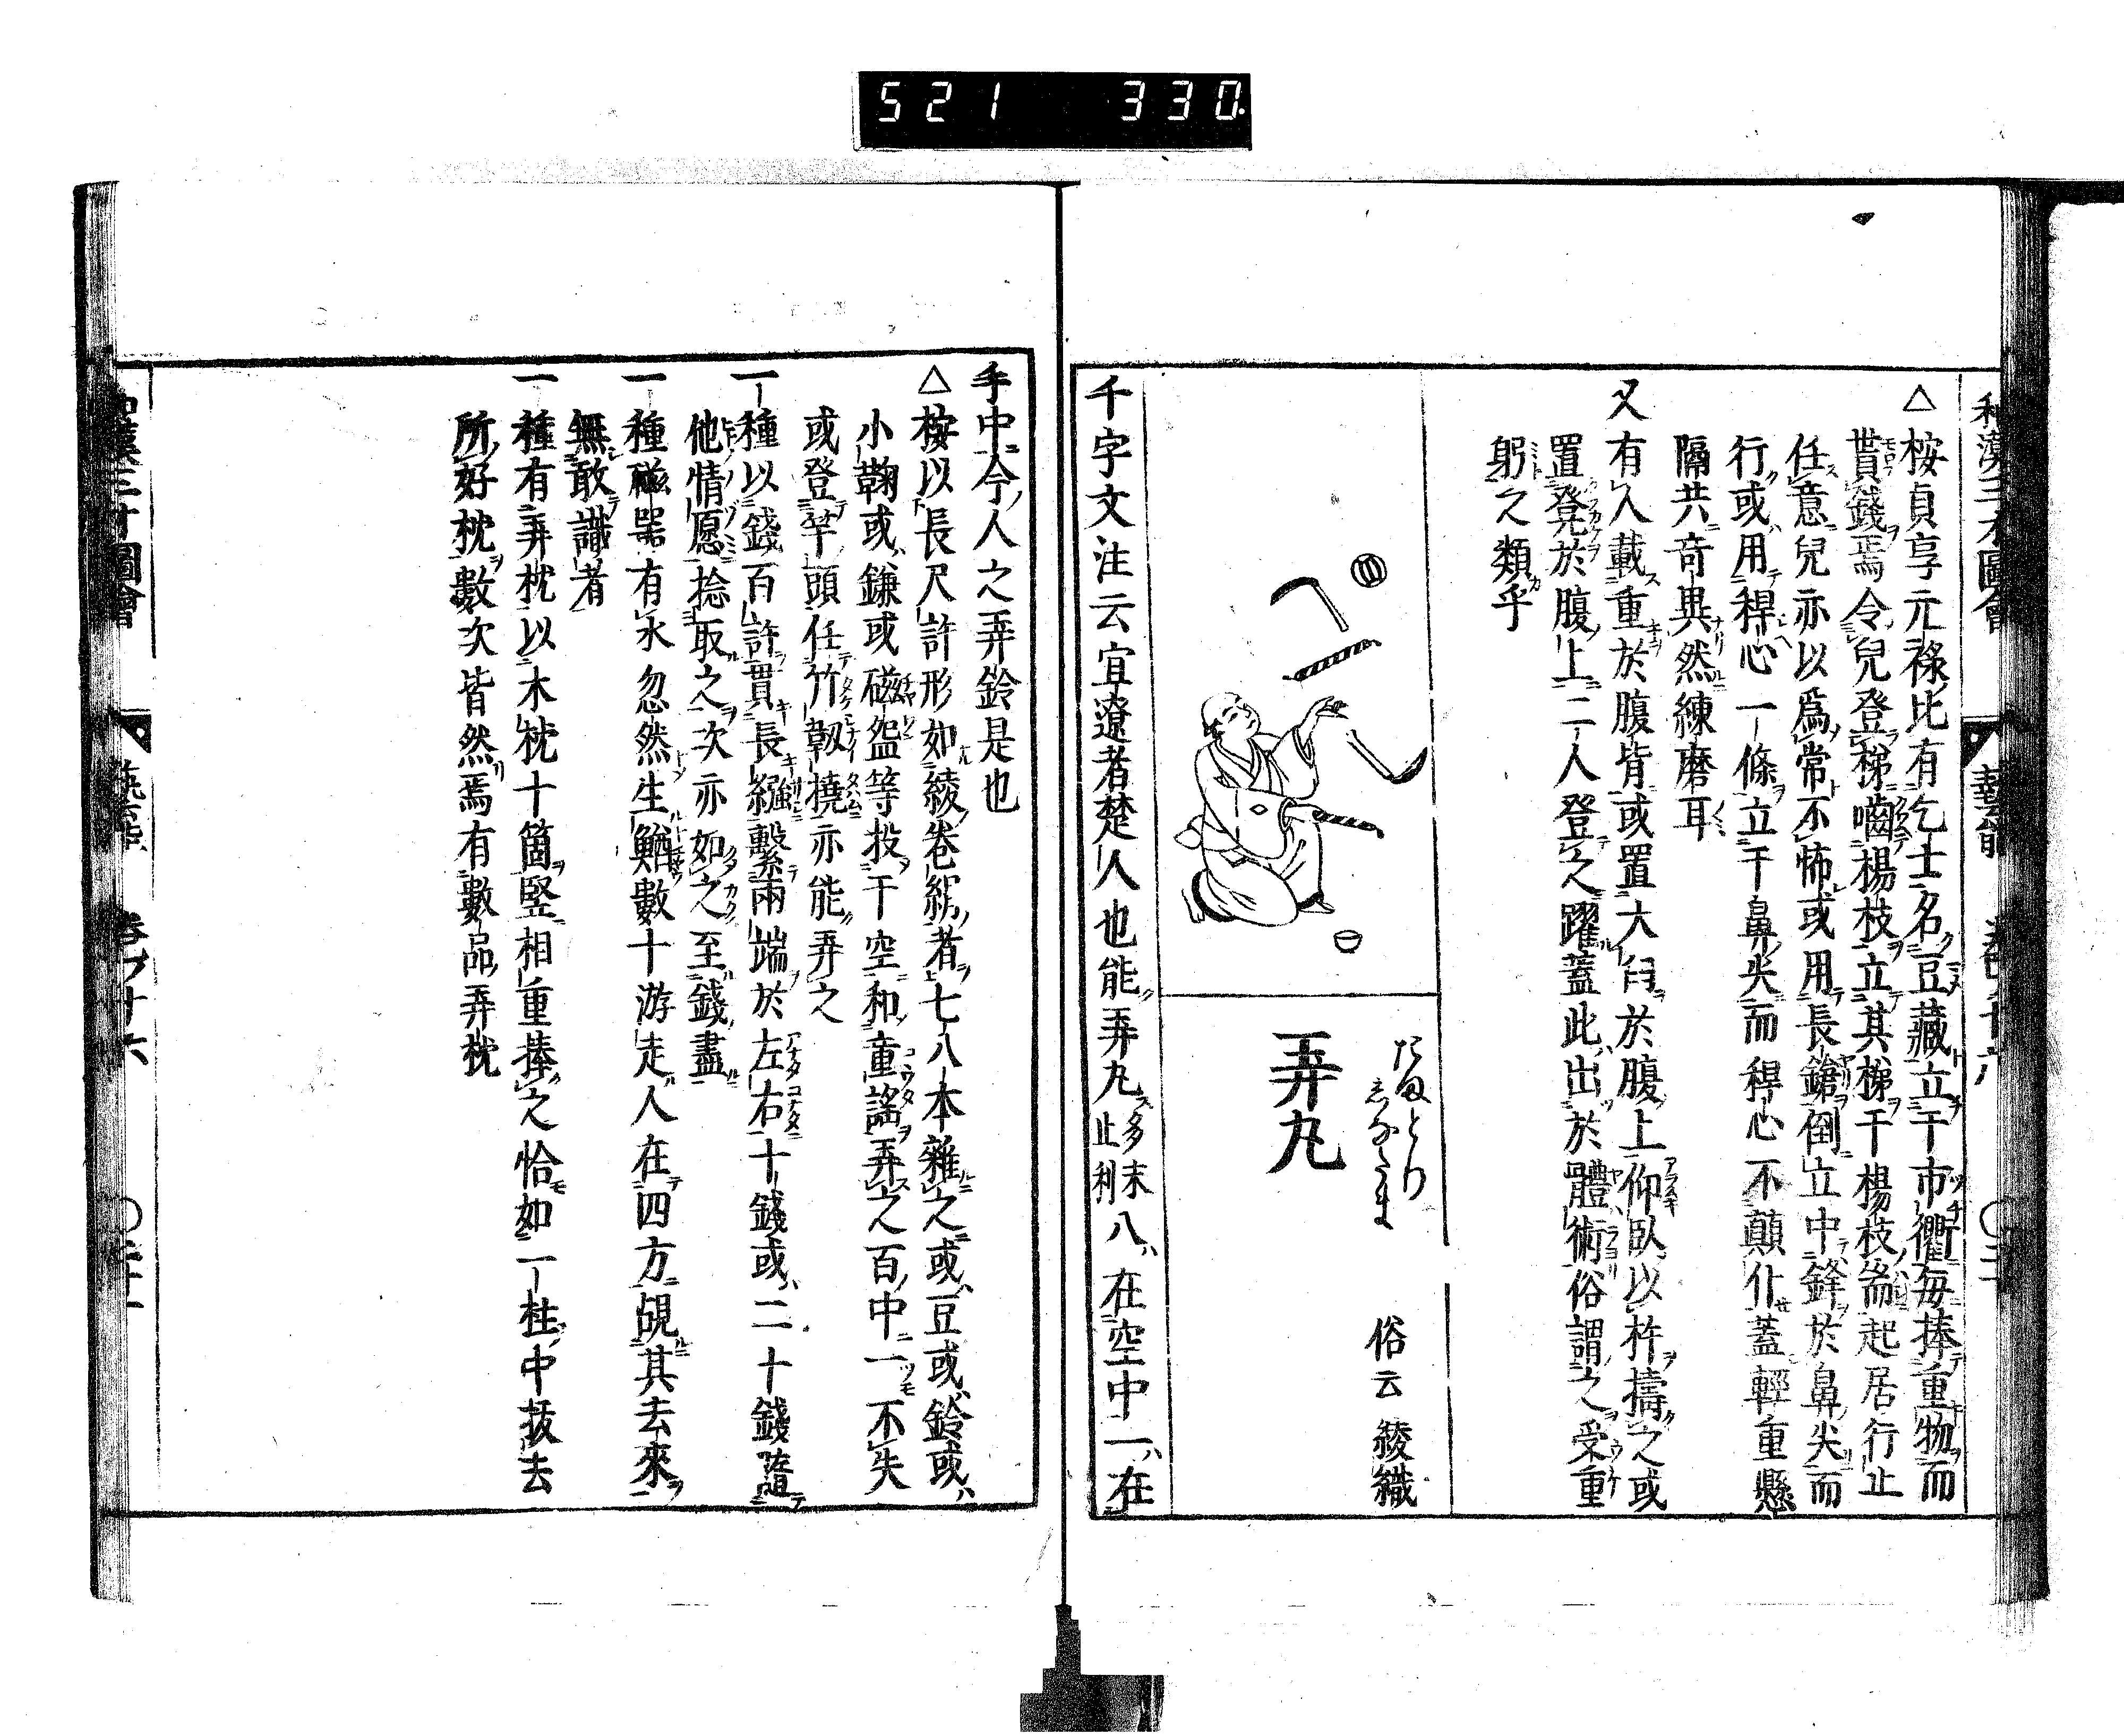 521 330
和漢三才圖會 藝能 卷ノ十六
△桉貞享元禄比有乞士名豆藏立于市衢毎捧重物而
貰錢焉令兒登梯嚙楊枝立其梯于楊枝耑起居行止
任意兒亦以爲常不怖或用長鎗倒立中鋒於鼻尖而
行或用稈心一條立于鼻尖而稈心不顛仆蓋輕重懸
隔共奇異然練磨耳
又有人載重於腹背或置大臼於腹上仰臥以杵擣之或
置凳於腹上二人登之躍蓋此出於體術俗謂之受重
躬之類乎
弄丸
たまとり
しなだま
俗云 綾織
千字文注云宜遼者楚人也能弄丸多末止利八在空中一在
手中今人之弄鈴是也
△桉以長尺許形如綾卷綛者七八本雜之或豆或鈴或
小鞠或鎌或磁盌等投于空和童謠弄之百中一不失
或登竿頭任竹靱撓亦能弄之
一種以錢百許貫長繩繫兩端於左右十錢或二十錢隨
他情愿捻取之次亦如之至錢盡
一種磁器有水忽然生鰌數十游走人在四方覘其去來
無敢識者
一種有弄枕以木枕十箇竪相重捧之恰如一柱中拔去
所好枕數次皆然焉有數品弄枕
和漢三才圖會 藝能 卷ノ十六